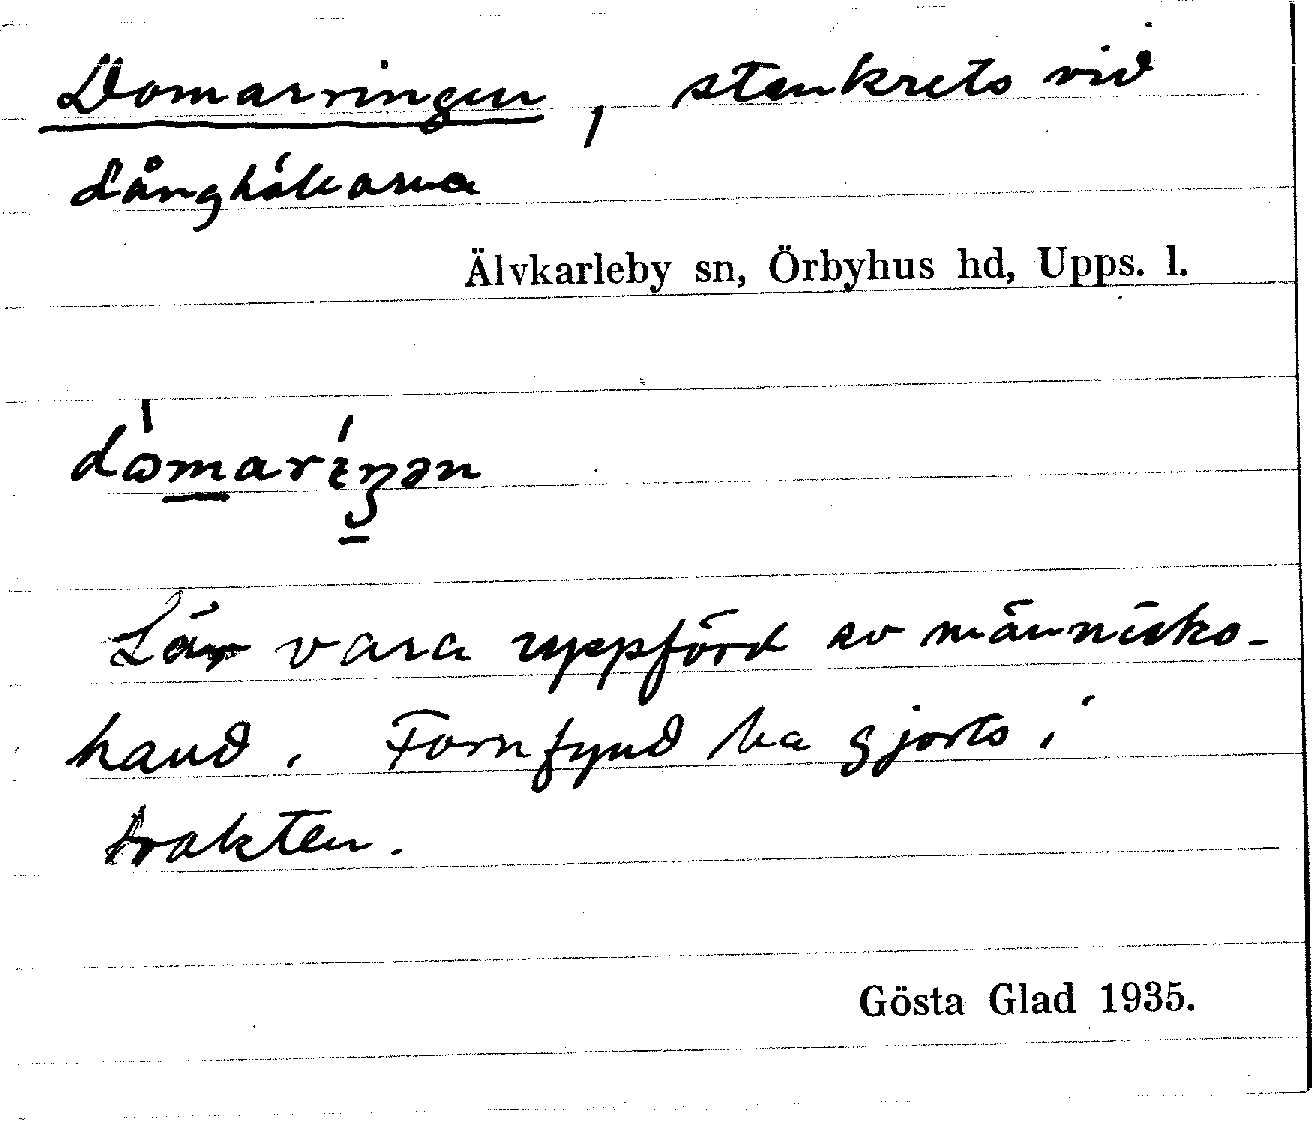 Domarringen, stenkrets vid
Långhällarna
Älvkarleby sn, Örbyhus hd, Upps. l.
dɷ̀marɩ́ŋən
Lär vara uppförd av människo-
hand. Fornfynd ha gjorts i
trakten.
Gösta Glad 1935.